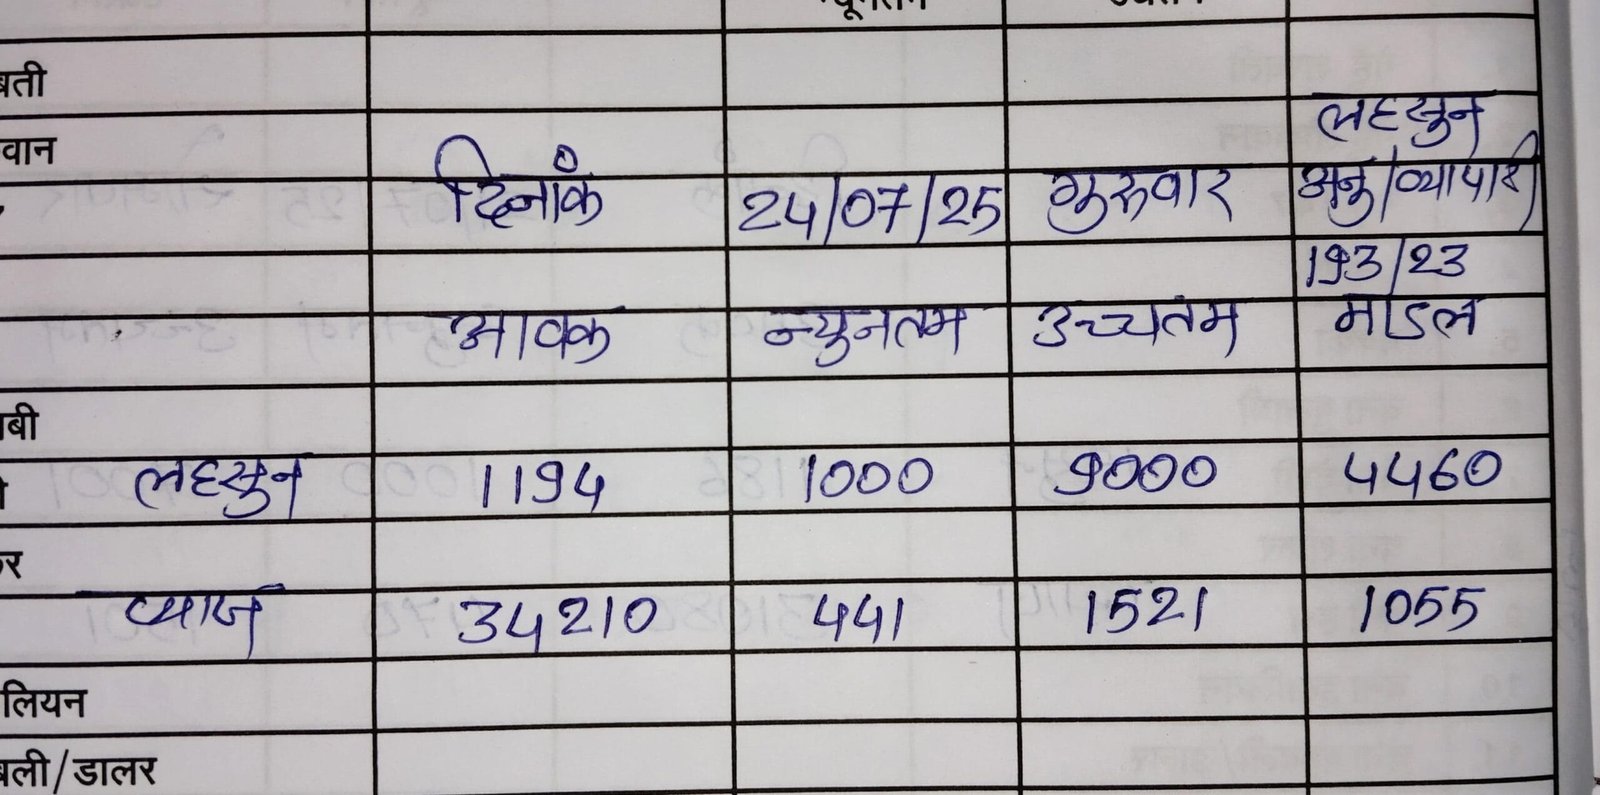 बती
लहसुन
वान
दिनांक 24/07/25 गुरुवार अनु/व्यापारी
193/23
आवक न्युनतम उच्चतम माडल
बी
लहसुन 1194 1000 9000 4460
र
प्याज 34210 441 1521 1055
लियन
बली/डालर